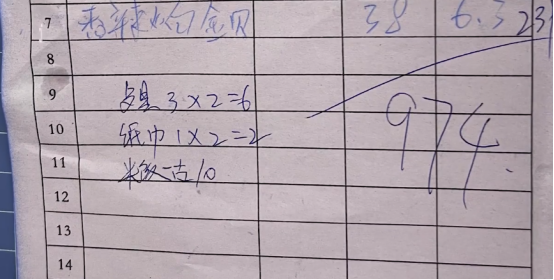 7 香辣火白金贝 38 6.3 23
8
9 3×2=6
974
10 纸巾1×2=2
11 米饭一古10
12
13
14